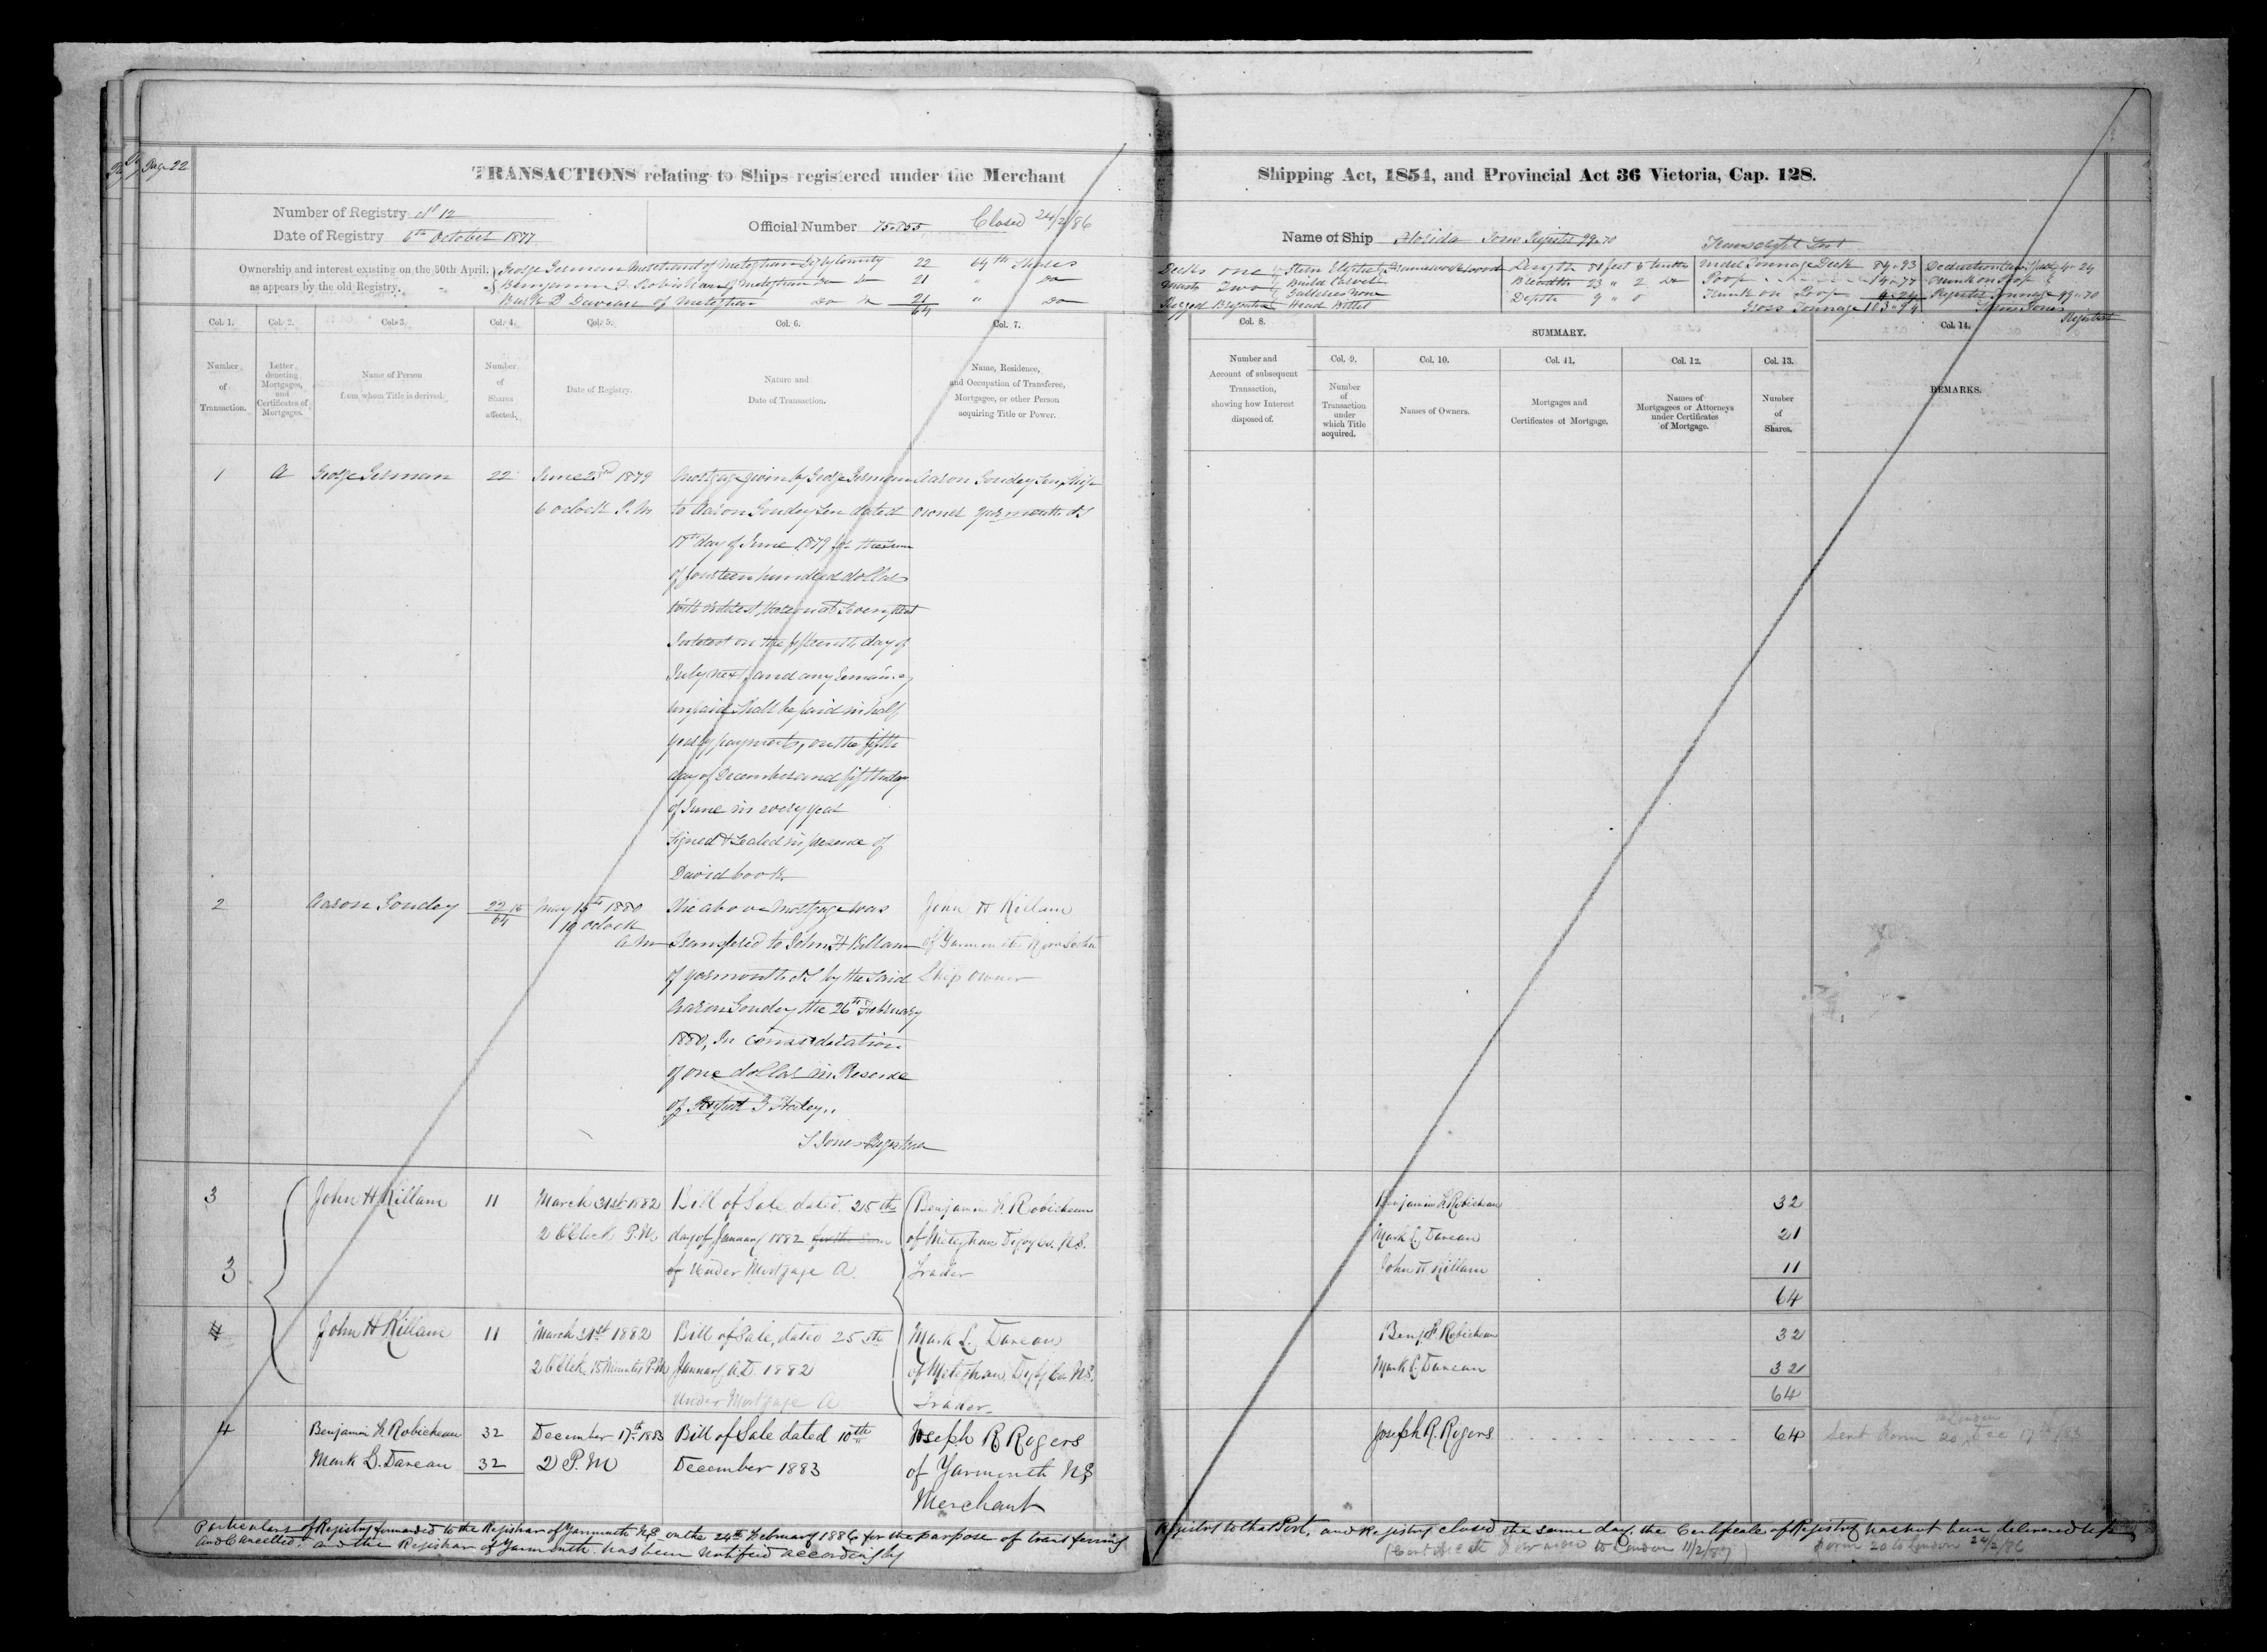 Page 22
TRANSACTIONS relating to Ships registered under the Merchant Shipping Act, 1854, and Provincial Act 36 Victoria, Cap. 128.
Number of Registry No 12
Date of Registry 6th October 1877
Official Number 75.855 Closed 24/2/86
Name of Ship Tons Register 99.70
Ownership and interest existing on the 30th April,
as appears by the old Registry.
George German Merchant of Meteghan Digby County 22 64th Shares
Benjamin of Meteghan Do Do 21 Do
of Meteghan Do Do 21 " Do
64
Decks one
Masts Two
Rigged Brigantine
Stern Elliptic
Build Carvel
Galleries None
Head Billet
Framework Wood
Length 81 feet 5 tenths
Breadth 23 " 2 Do
Depth 9 " 0
Under Tonnage Deck 84.93
Poop 14.77
Trunk on Poop 4.24
Gross Tonnage 103.94
4.24
Trunk on Poop
Register Tonnage 99.70
Registrar
Col. 1. Col. 2. Col. 3. Col. 4. Col. 5. Col. 6. Col. 7. Col. 8. SUMMARY. Col. 14.
Col. 9. Col. 10. Col. 11. Col. 12. Col. 13.
Number of Transaction.
Letter denoting Mortgages, and Certificates of Mortgages.
Name of Person from whom Title is derived.
Number of Shares affected.
Date of Registry.
Nature and Date of Transaction.
Name, Residence, and Occupation of Transferee, Mortgagee, or other Person acquiring Title or Power.
Number and Account of subsequent Transaction, showing how Interest disposed of.
Number of Transaction under which Title acquired.
Names of Owners.
Mortgages and Certificates of Mortgage.
Names of Mortgagees or Attorneys under Certificates of Mortgage.
Number of Shares.
REMARKS.
1 A George German 22 June 23rd 1879 Mortgage given by George German Aaron Goudey Sen, Ship
6 oclock P.M to Aaron Goudey Sen dated owner Yarmouth NS
17th day of June 1879 for the sum
of fourteen hundred dollars
with interest
Interest on the fifteenth day of
July next, and any remaining
unpaid shall be paid in half
yearly payments, on the fifth
day of December and fifth day
of June in every year
Signed & Sealed in presence of
David Cook
2 Aaron Goudey 22 64 May 15th 1880 The above Mortgage was John H Killam
10 oclock
A M Transfered to John H Killam of Yarmouth Nova Scotia
of Yarmouth NS by the said Ship Owner
Aaron Goudey the 26th February
1880, In consideration
of one dollar in Presence
of
Registrar
3 John H Killam 11 March 31st 1882 Bill of Sale dated 25th Benjamin Robicheau Benjamin Robicheau 32
2 O'Clock P.M day of January 1882 for the sum of Meteghan Digby Co. N.S. 21
3 of Under Mortgage A. Trader John H Killam 11
64
4 John H Killam 11 March 31st 1882 Bill of Sale, dated 25th Mark Benj. Robicheau 32
2 O'Clck 15 Minutes P.M January A.D. 1882 of Meteghan Digby Co. N.S. Mark 32
Under Mortgage A Trader. 64
4 Benjamin Robicheau 32 December 17th 1883 Bill of Sale dated 10th Joseph R Rogers Joseph R. Rogers 64 Sent Form 20 Dec 17th/83
Mark 32 2 P.M December 1883 of Yarmouth NS
Merchant
Particulars of Registry forwarded to the Registrar of Yarmouth N.S. on the 24th February 1886 for the purpose of transferring Registry to that Port, and Registry closed the same day, the Certificate of Registry has not been delivered up
and Cancelled, and the Registrar of Yarmouth has been notified accordingly
(Certificate forwarded to London 11/2/87) Form 20 to London 24/2/86